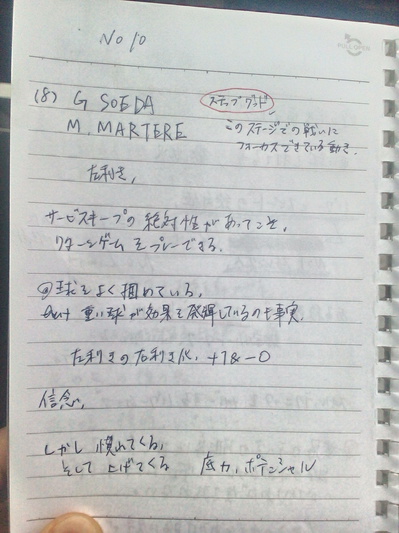 No 10
(8) G SOEDA
ステップグッド
M. MARTERE
このステージでの戦いに
フォーカスできている動き.
左利き,
サービスキープの絶対性があってこそ,
リターンゲームをプレーできる.
球をよく掴めている,
but 重い球が効果を発揮しているのも事実.
左利きの右利き化,
信念,
しかし 慣れてくる,
そして 上げてくる 底力, ポテンシャル